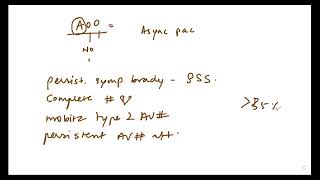 AOO = Async pac
NO
persist. symp brady - SSS.
Complete # AV
mobitz type 2 AV#
persistent AV# aft.
>35%